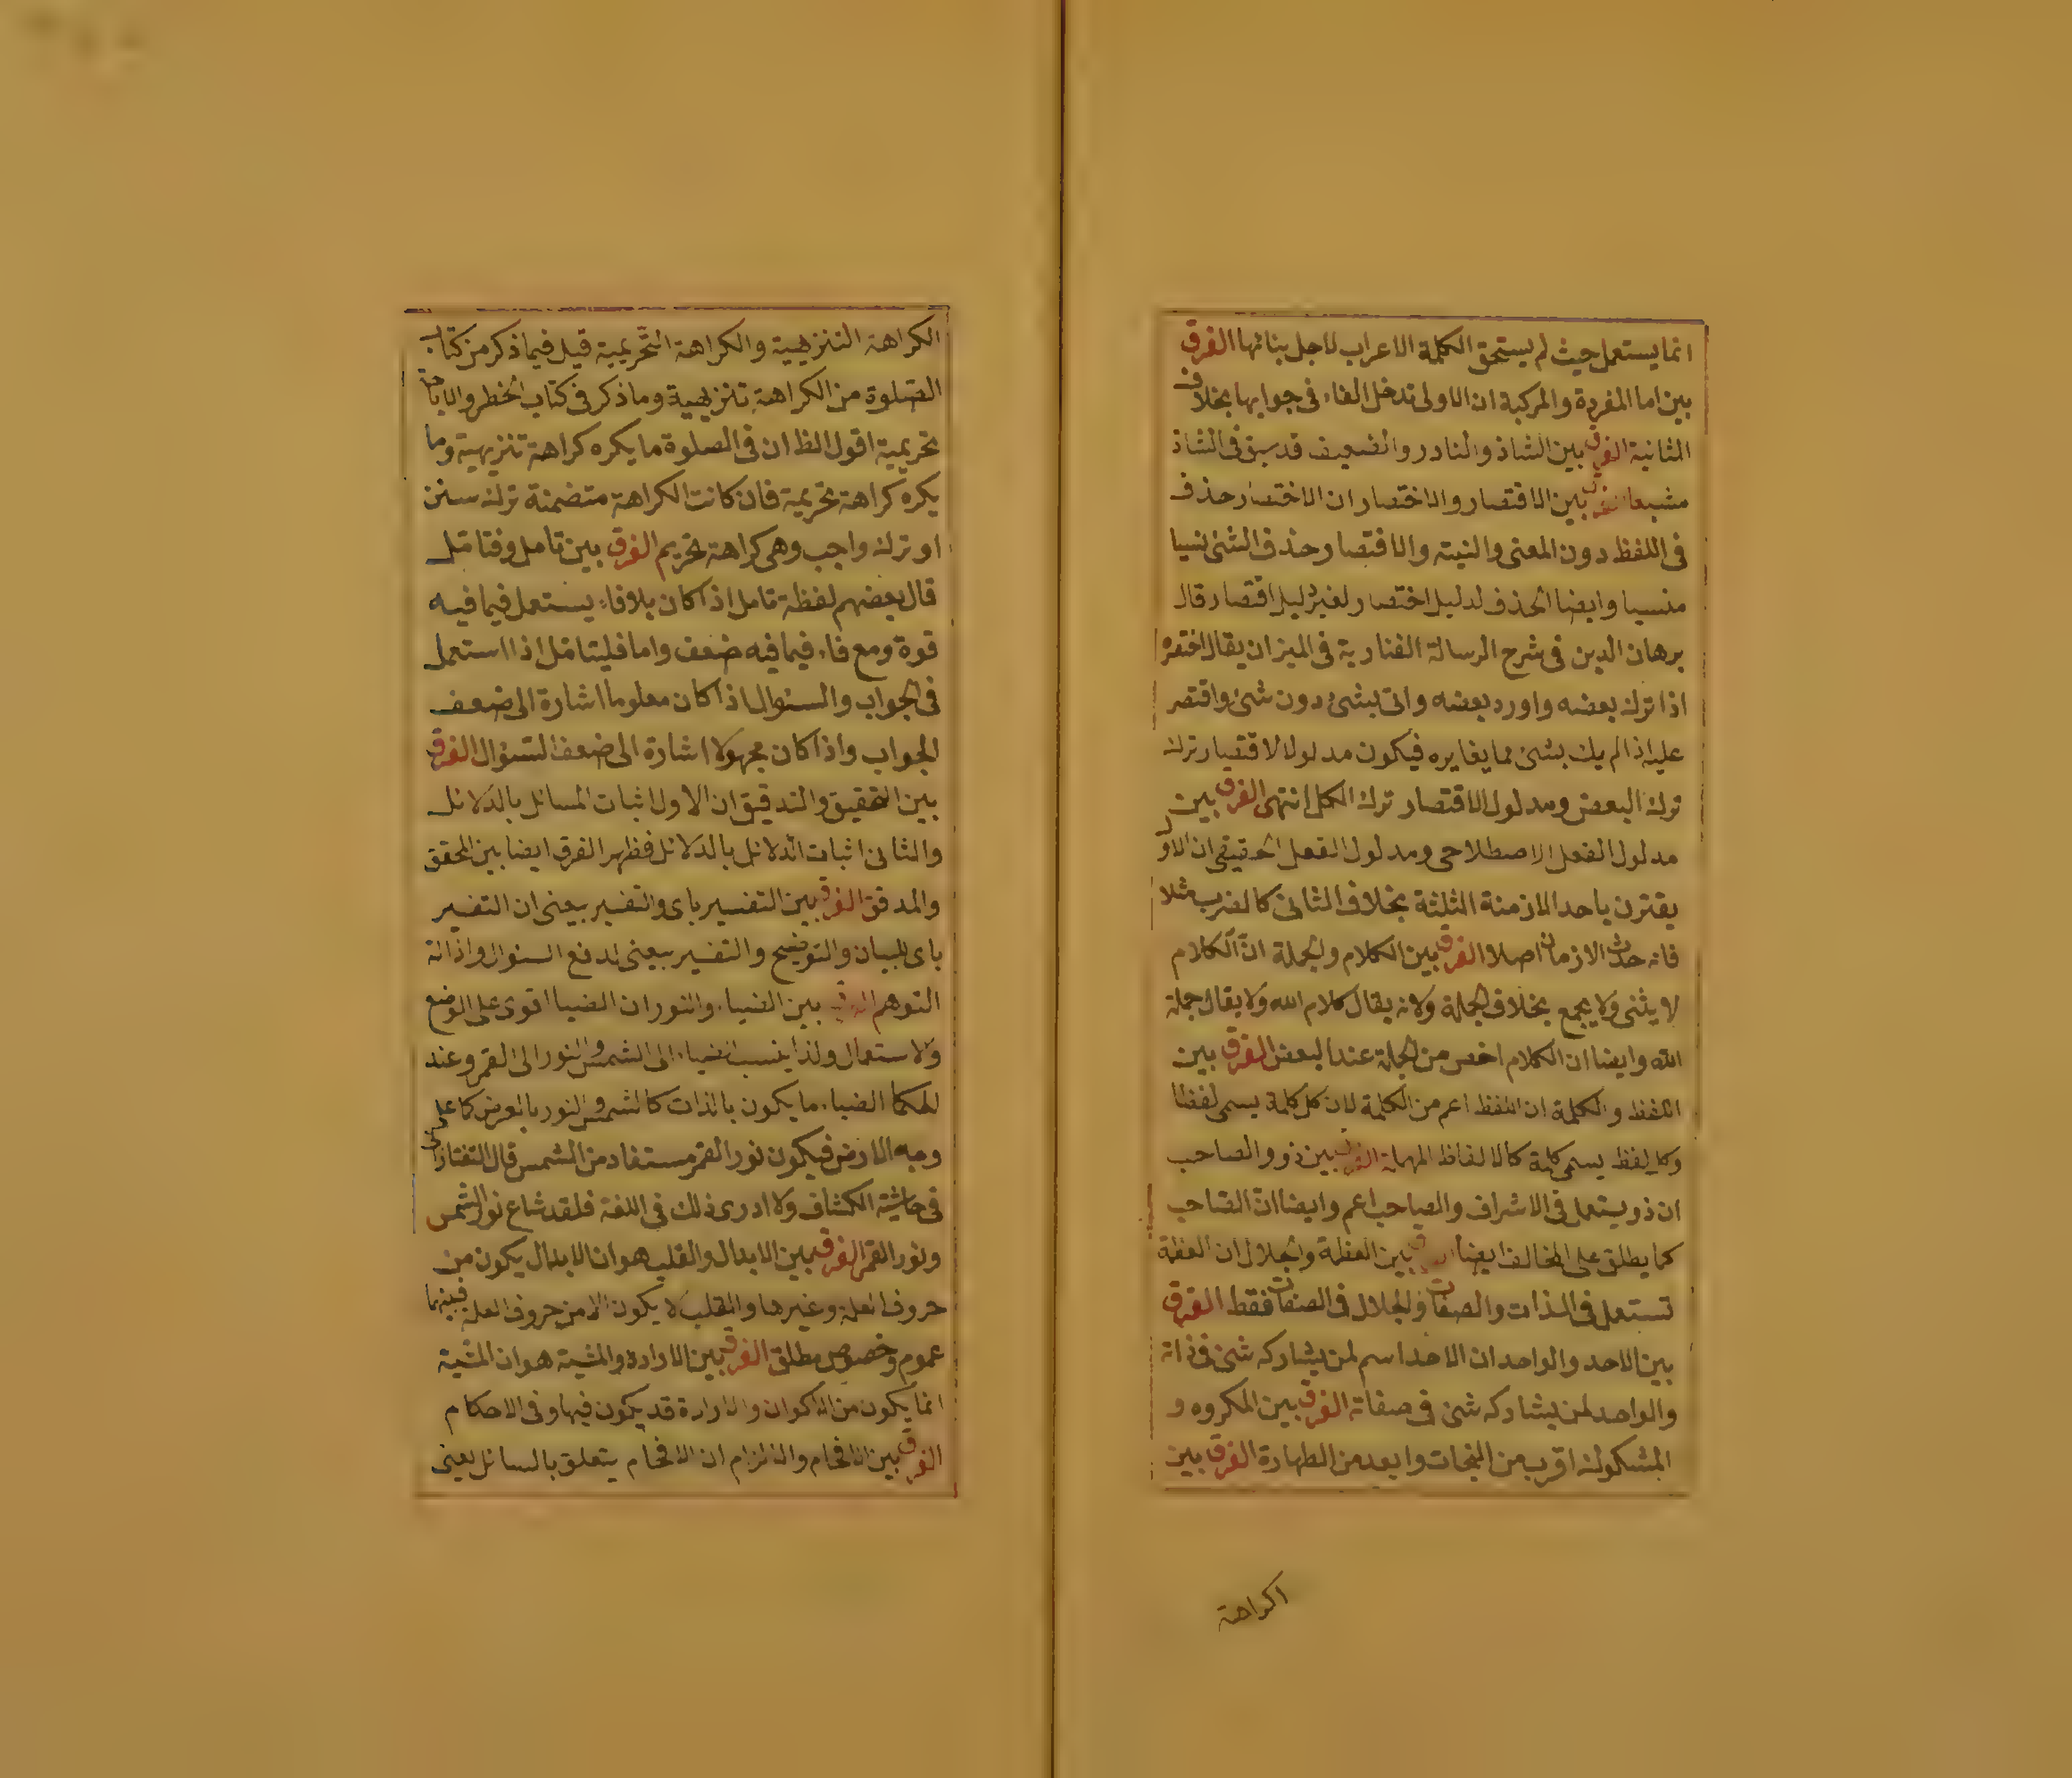 انما يستعمل حيث لم يستحق الكلمة الاعراب لاجل بنائها الفرق
بين اما المفردة والمركبة ان الاولى تدخل الفاء فى جوابها بخلاف
الثانية الفرق بين الشاذ والنادر والضعيف قد سبق فى الشاذ
مشبعا الفرق بين الاقتصار والاختصار ان الاختصار حذف
فى اللفظ دون المعنى والنية والاقتصار حذف الشئ نسيا
منسيا وايضا الحذف لدليل اختصار لغير دليل اقتصار قال
برهان الدين فى شرح الرسالة الفنارية فى الميزان يقال اختصره
اذا ترك بعضه واورد بعضه واتى بشئ دون شئ واقتصر
عليه اذا لم يك بشئ مما يغايره فيكون مدلول الاقتصار ترك
ترك البعض ومدلول الاقتصار ترك الكل انتهى الفرق بين
مدلول الفعل الاصطلاحى ومدلول الفعل الحقيقى ان الاول
يقترن باحد الازمنة الثلثة بخلاف الثانى كالضرب مثلا
فانه حدث الازمان اصلا الفرق بين الكلام والجملة انّ الكلام
لا يثنى ولا يجمع بخلاف الجملة ولانه يقال كلام الله ولا يقال جملة
الله وايضا ان الكلام اخص من الجملة عند البعض الفرق بين
اللفظ والكلمة ان اللفظ اعم من الكلمة لان كل كلمة يسمى لفظا
وكل لفظ يسمى كلمة كالالفاظ المهملة الفرق بين ذو والصاحب
ان ذو يستعمل فى الاشراف والصاحب اعم وايضا ان الصاحب
كما يطلق على المخالف ايضا الفرق بين العظمة والجلال ان العظمة
تستعمل فى الذات والصفات والجلال فى الصفات فقط الفرق
بين الاحد والواحد ان الاحد اسم لمن يشاركه شئ فى ذاته
والواحد لمن يشاركه شئ فى صفاته الفرق بين المكروه و
المشكوك اقرب من النجات وابعد من الطهارة الفرق بين
اكراهة
الكراهة التنزيهية والكراهة التّحريمية قيل فيما ذكر من كتاب
الصلوة من الكراهة تنزيهية وما ذكر فى كتاب الخطر والاباحة
تحريمية اقول الظ ان فى الصلوة ما يكره كراهة تنزيهية وما
يكره كراهة تحريمية فان كانت الكراهة متضمنة ترك سنن
او ترك واجب وهى كراهة تحريم الفرق بين تامل وفتامل
قال بعضهم لفظة تامل اذا كان بلا فاء يستعمل فيما فيه
قوة ومع فاء فيما فيه ضعف واما فليتامل اذا استعمل
فى الجواب والسئوال اذا كان معلوما اشارة الى ضعف
الجواب واذا كان مجهولا اشارة الى ضعف السئوال الفرق
بين التحقيق والتدقيق ان الاول اثبات المسائل بالدلائل
والثانى اثبات الدلائل بالدلائل فظهر الفرق ايضا بين المحقق
والمدقق الفرق بين التفسير باى والتفسير بيعنى ان التفسير
باى للبيان والتوضيح والتفسير بيعنى لدفع السئوال واذالة
التوهم الفرق بين الضياء والنور ان الضيا اقوى على الوضع
والاستعمال ولذا ينسب الضياء الى الشمس والنور الى القمر وعند
الحكما الضياء ما يكون بالذات كالشمس والنور بالعرض كما على
وجه الارض فيكون نور القمر مستفاد من الشمس قال التفتازانى
فى حاشية الكشاف ولا ادرى ذلك فى اللغة فلقد شاع نور الشمس
ونور القمر الفرق بين الابدال والقلب هو ان الابدال يكون من
حروف العلة وغيرها والقلب لا يكون الا من حروف العلة فبينهما
عموم وخصوص مطلق الفرق بين الارادة والمشية هو ان المشية
انما يكون من الاكوان والارادة قد يكون فيها وفى الاحكام
الفرق بين الافحام والالزام ان الافحام يتعلق بالسائل يعنى